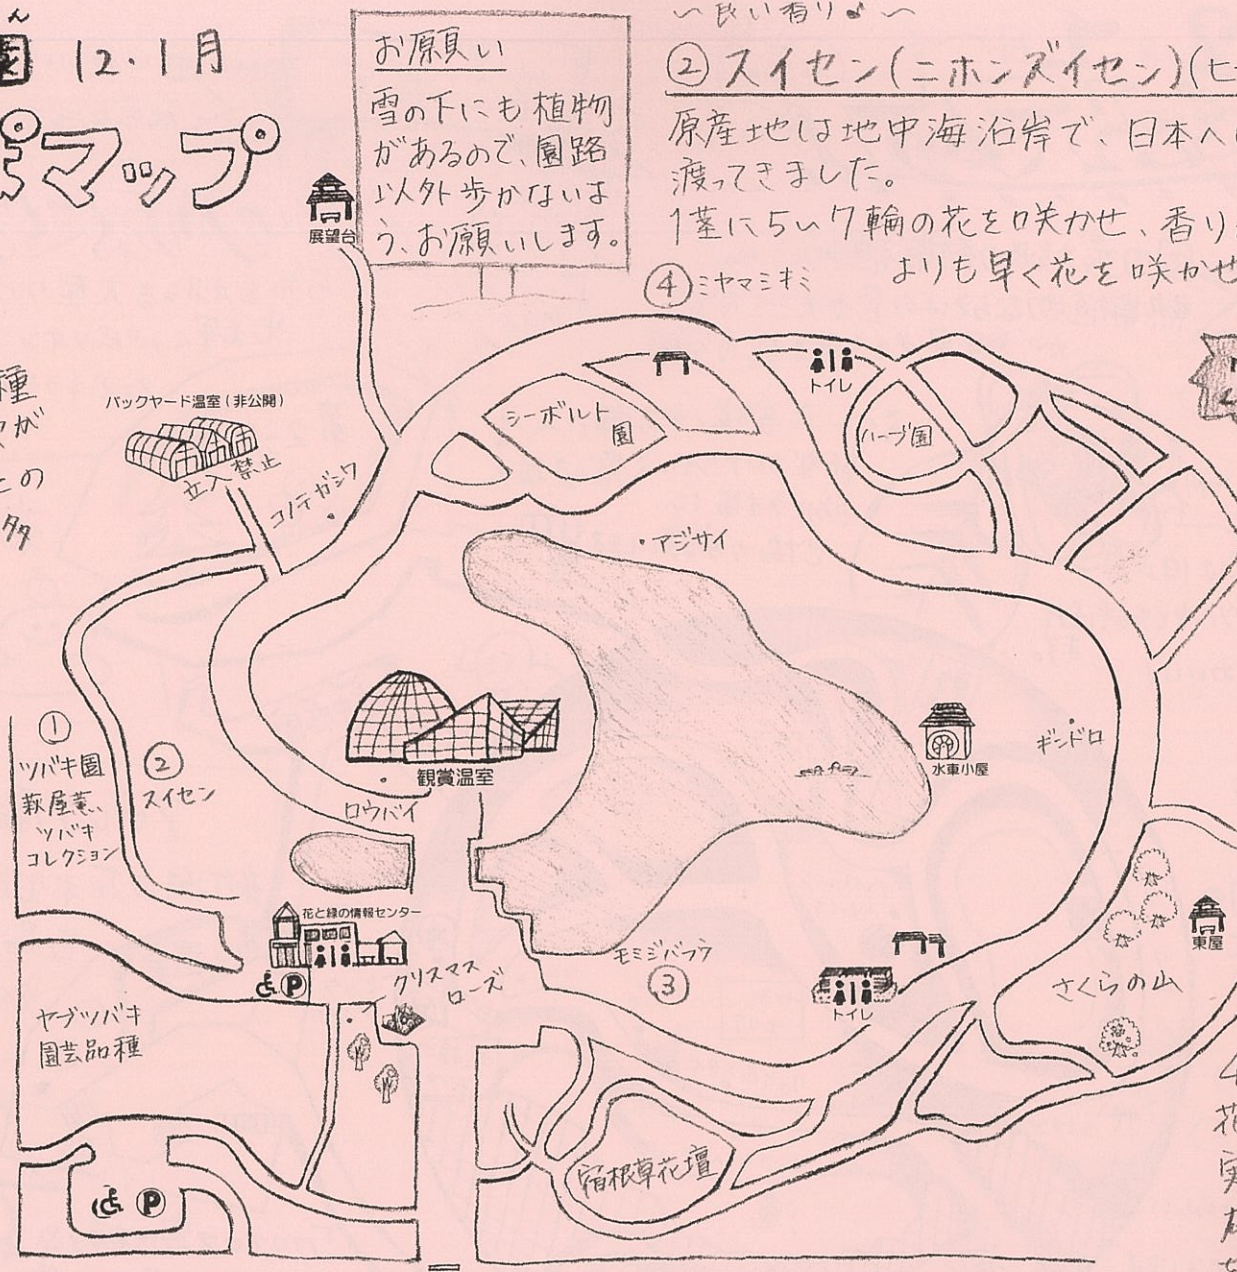 園 12・1月
ぽマップ
お願い
雪の下にも植物
があるので、園路
以外歩かないよ
う、お願いします。
〜良い香り♪〜
②スイセン(ニホンズイセン)(ヒ
原産地は地中海沿岸で、日本へ
渡ってきました。
1茎に5〜7輪の花を咲かせ、香り
よりも早く花を咲かせ
④ミヤマシキミ
展望台
種
が
この
バックヤード温室(非公開)
立入禁止
コノテガシワ
シーボルト
園
トイレ
ハーブ園
アジサイ
①
ツバキ園
萩屋薫、
ツバキ
コレクション
②
スイセン
観賞温室
ロウバイ
水車小屋
ギンドロ
花と緑の情報センター
P
クリスマス
ローズ
モミジバフウ
③
トイレ
さくらの山
東屋
ヤブツバキ
園芸品種
P
宿根草花壇
花
実